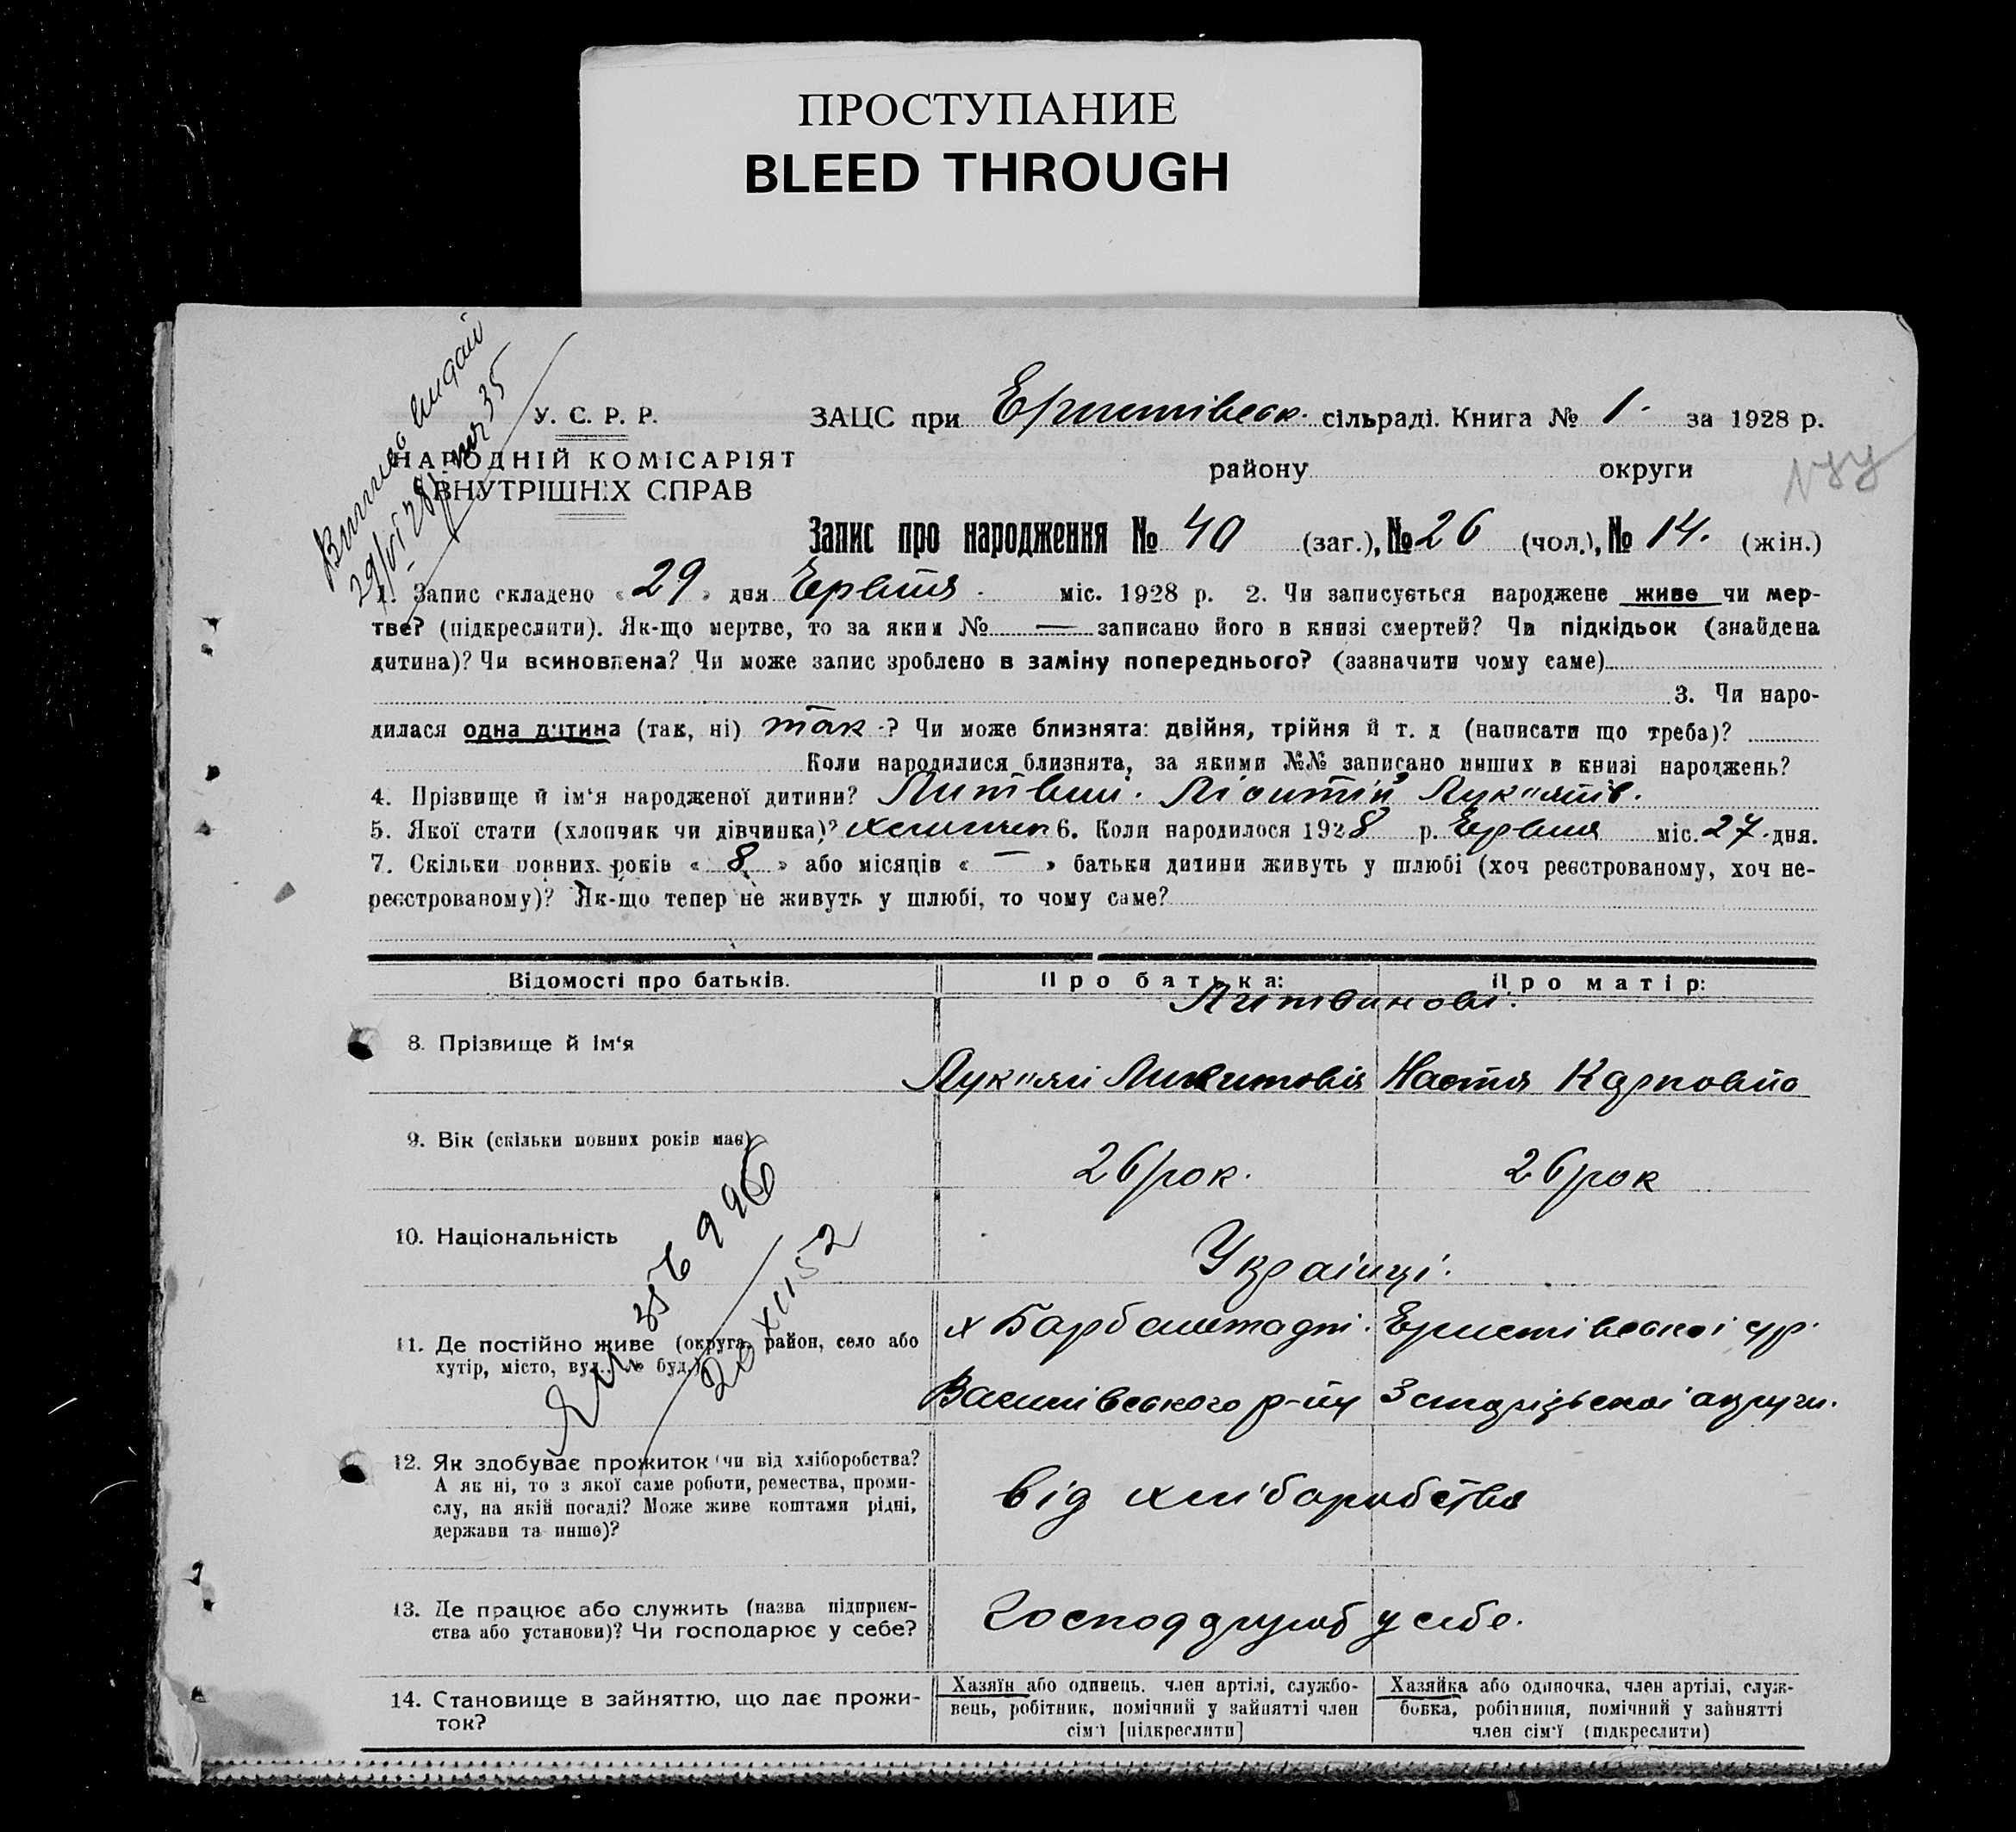 ПРОСТУПАНИЕ
BLEED THROUGH
У. С. Р. Р.
НАРОДНІЙ КОМІСАРІЯТ
ВНУТРІШНІХ СПРАВ
ЗАЦС при сільраді. Книга № 1. за 1928 р.
району округи
Запис про народження № 40 (заг.), № 26 (чол.), № 14. (жін.)
1. Запис складено « 29 » дня Ервтня. міс. 1928 р. 2. Чи записується народжене живе чи мер-
тве? (підкреслити). Як-що мертве, то за яким № — записано його в книзі смертей? Чи підкідьок (знайдена
дитина)? Чи всиновлена? Чи може запис зроблено в заміну попереднього? (зазначити чому саме)
3. Чи наро-
дилася одна дитина (так, ні) так ? Чи може близнята: двійня, трійня й т. д (написати що треба)?
Коли народилися близнята, за якими №№ записано инших в книзі народжень?
4. Прізвище й ім‘я народженої дитини? Литвин. Лук"янів.
5. Якої стати (хлопчик чи дівчинка)? хлопчик 6. Коли народилося 1928 р. Ервтня міс. 27 дня.
7. Скільки повних років « 8 » або місяців « — » батьки дитини живуть у шлюбі (хоч реєстрованому, хоч не-
реєстрованому)? Як-що тепер не живуть у шлюбі, то чому саме?
Відомості про батьків. Про батька: Про матір:
Литвинові.
8. Прізвище й ім‘я
Лук"ян Микитовіч Настя Карповна
9. Вік (скільки повних років має)
26 рок. 26 рок
10. Національність
Українці.
11. Де постійно живе (округа, район, село або
хутір, місто, вул., № буд.)
х Барбаштадт. Ериетівескоі с/р.
Василівеського р-ну Запорізьскоі округи.
12. Як здобуває прожиток чи від хліборобства?
А як ні, то з якої саме роботи, ремества, проми-
слу, на якій посаді? Може живе коштами рідні,
держави та инше)?
від хліборобства
13. Де працює або служить (назва підприєм-
ства або установи)? Чи господарює у себе?
у себе.
14. Становище в зайняттю, що дає прожи-
ток?
Хазяїн або одинець, член артілі, службо-
вець, робітник, помічний у зайнятті член
сім‘ї [підкреслити]
Хазяйка або одиночка, член артілі, служ-
бовка, робітниця, помічний у зайнятті
член сім‘ї (підкреслити)